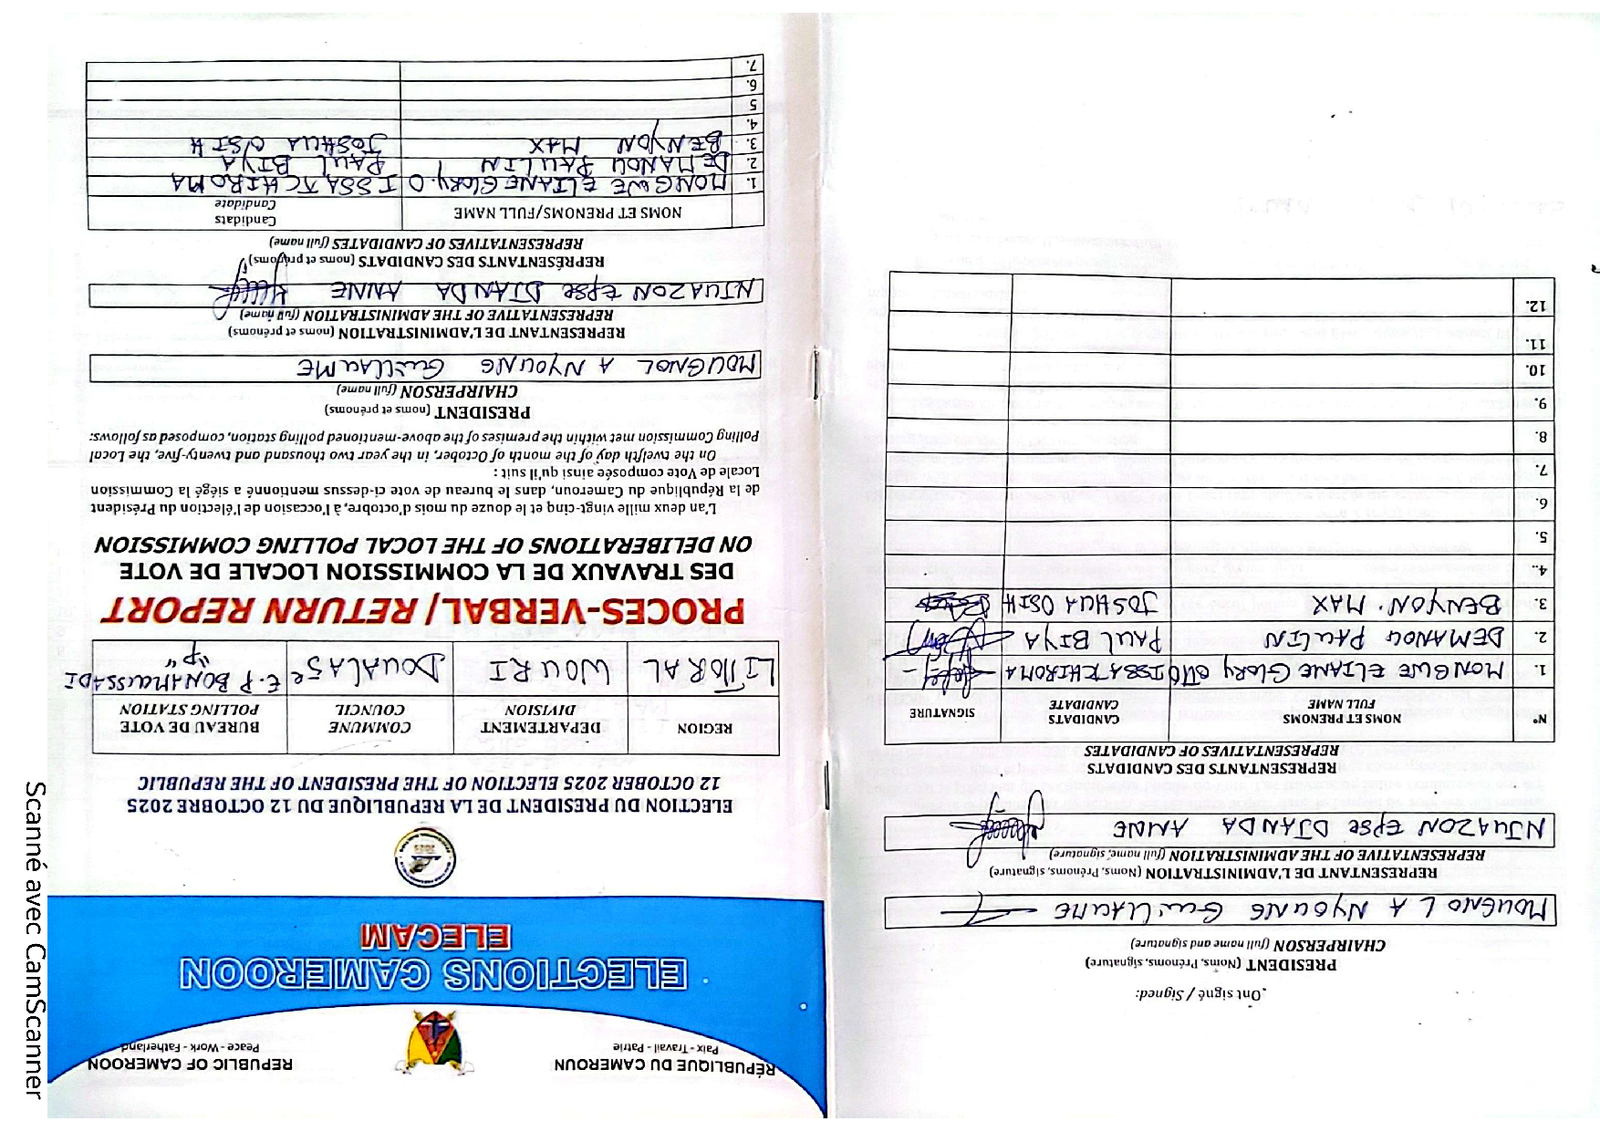 RÉPUBLIQUE DU CAMEROUN
Paix - Travail - Patrie
REPUBLIC OF CAMEROON
Peace - Work - Fatherland
ELECTIONS CAMEROON
ELECAM
ELECTION DU PRESIDENT DE LA REPUBLIQUE DU 12 OCTOBRE 2025
12 OCTOBER 2025 ELECTION OF THE PRESIDENT OF THE REPUBLIC
REGION DEPARTEMENT COMMUNE BUREAU DE VOTE
DIVISION COUNCIL POLLING STATION
LITTORAL WOURI DOUALA 5e E.P BONAMOUSSADI
"P"
PROCES-VERBAL / RETURN REPORT
DES TRAVAUX DE LA COMMISSION LOCALE DE VOTE
ON DELIBERATIONS OF THE LOCAL POLLING COMMISSION
L'an deux mille vingt-cinq et le douze du mois d'octobre, à l'occasion de l'élection du Président
de la République du Cameroun, dans le bureau de vote ci-dessus mentionné a siégé la Commission
Locale de Vote composée ainsi qu'il suit :
On the twelfth day of the month of October, in the year two thousand and twenty-five, the Local
Polling Commission met within the premises of the above-mentioned polling station, composed as follows:
PRESIDENT (noms et prénoms)
CHAIRPERSON (full name)
MOUGNOL A NYOUNG GUILLAUME
REPRESENTANT DE L'ADMINISTRATION (noms et prénoms)
REPRESENTATIVE OF THE ADMINISTRATION (full name)
NJUAZON EPSE DJANDA ANNE
REPRÉSENTANTS DES CANDIDATS (noms et prénoms)
REPRESENTATIVES OF CANDIDATES (full name)
NOMS ET PRENOMS/FULL NAME Candidats
Candidate
1. MONGWE ELIANE Glory.O ISSA TCHIROMA
2. DEMANOU PAULIN PAUL BIYA
3. BENYON MAX JOSHUA OSIH
4.
5
6.
7.
Ont signé / Signed:
PRESIDENT (Noms, Prénoms, signature)
CHAIRPERSON (full name and signature)
MOUGNOL A NYOUNG GUILLAUME
REPRESENTANT DE L'ADMINISTRATION (Noms, Prénoms, signature)
REPRESENTATIVE OF THE ADMINISTRATION (full name, signature)
NJUAZON EPSE DJANDA ANNE
REPRESENTANTS DES CANDIDATS
REPRESENTATIVES OF CANDIDATES
N° NOMS ET PRENOMS CANDIDATS SIGNATURE
FULL NAME CANDIDATE
1. MONGWE ELIANE Glory ISSA TCHIROMA
2. DEMANOU PAULIN PAUL BIYA
3. BENYON. MAX JOSHUA OSIH
4..
5.
6.
7.
8.
9.
10.
11.
12.
Scanné avec CamScanner